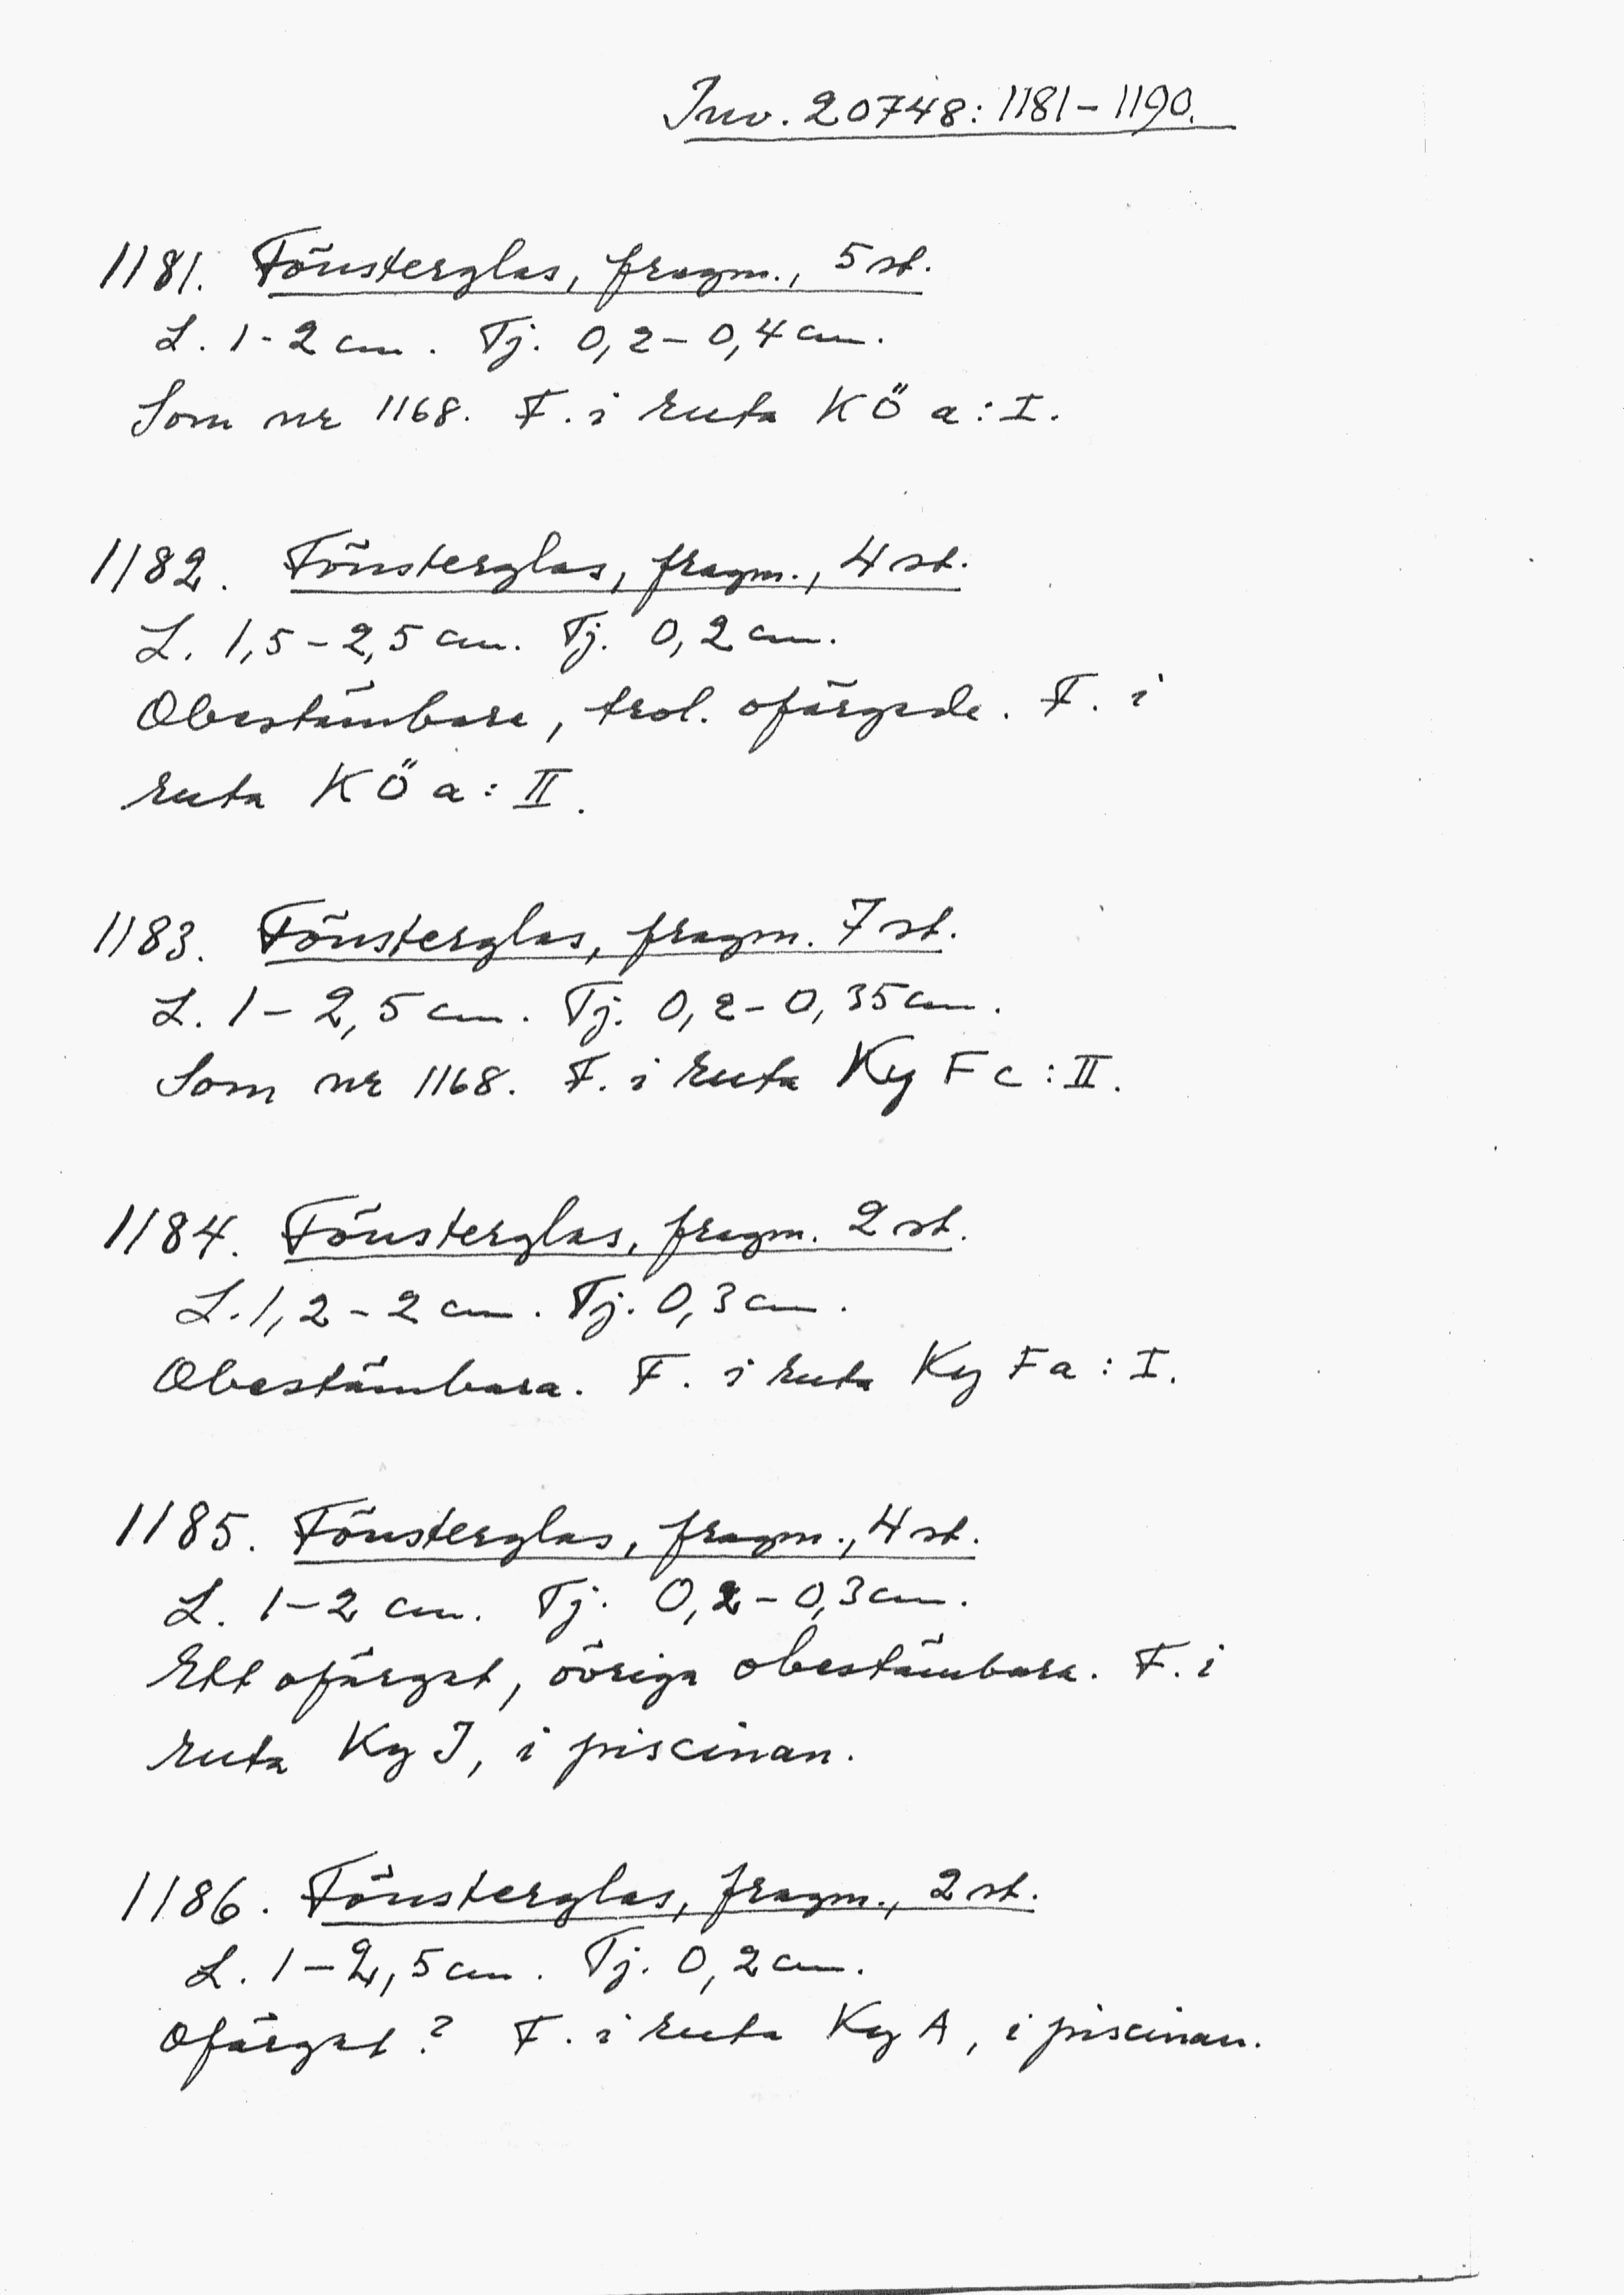 Inv. 20748: 1181-1190.
1181. Fönsterglas, fragm., 5 st.
L. 1-2 cm. Tj. 0,2-0,4 cm.
Som nr 1168. F. i ruta KÖ a: I.
1182. Fönsterglas, fragm., 4 st.
L. 1,5-2,5 cm. Tj. 0,2 cm.
Obestämbara, trol. ofärgade. F. i
ruta KÖ a: II.
1183. Fönsterglas, fragm. 7 st.
L. 1-2,5 cm. Tj. 0,2-0,35 cm.
Som nr 1168. F. i ruta Ky Fc: II.
1184. Fönsterglas, fragm. 2 st.
L. 1,2-2 cm. Tj. 0,3 cm.
Obestämbara. F. i ruta Ky Fa: I.
1185. Fönsterglas, fragm., 4 st.
L. 1-2 cm. Tj. 0,2-0,3 cm.
Ett ofärgat, övriga obestämbara. F. i
ruta Ky J, i piscinan.
1186. Fönsterglas, fragm., 2 st.
L. 1-2,5 cm. Tj. 0,2 cm.
Ofärgat? F. i ruta Ky A, i piscinan.